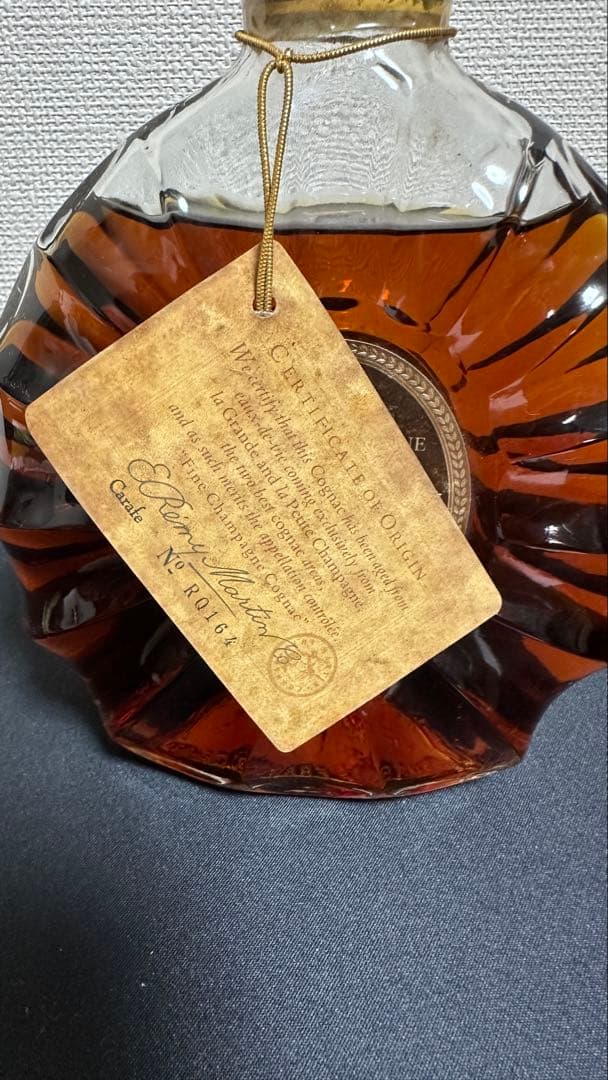 CERTIFICATE OF ORIGIN
We certify that this Cognac has been aged from
eaux-de-vie coming exclusively from
la Grande and la Petite Champagne,
the two best cognac areas
and as such merits the appellation contrôlée
"Fine Champagne Cognac"
E. Remy Martin
Carafe
Nº RQ164
NE